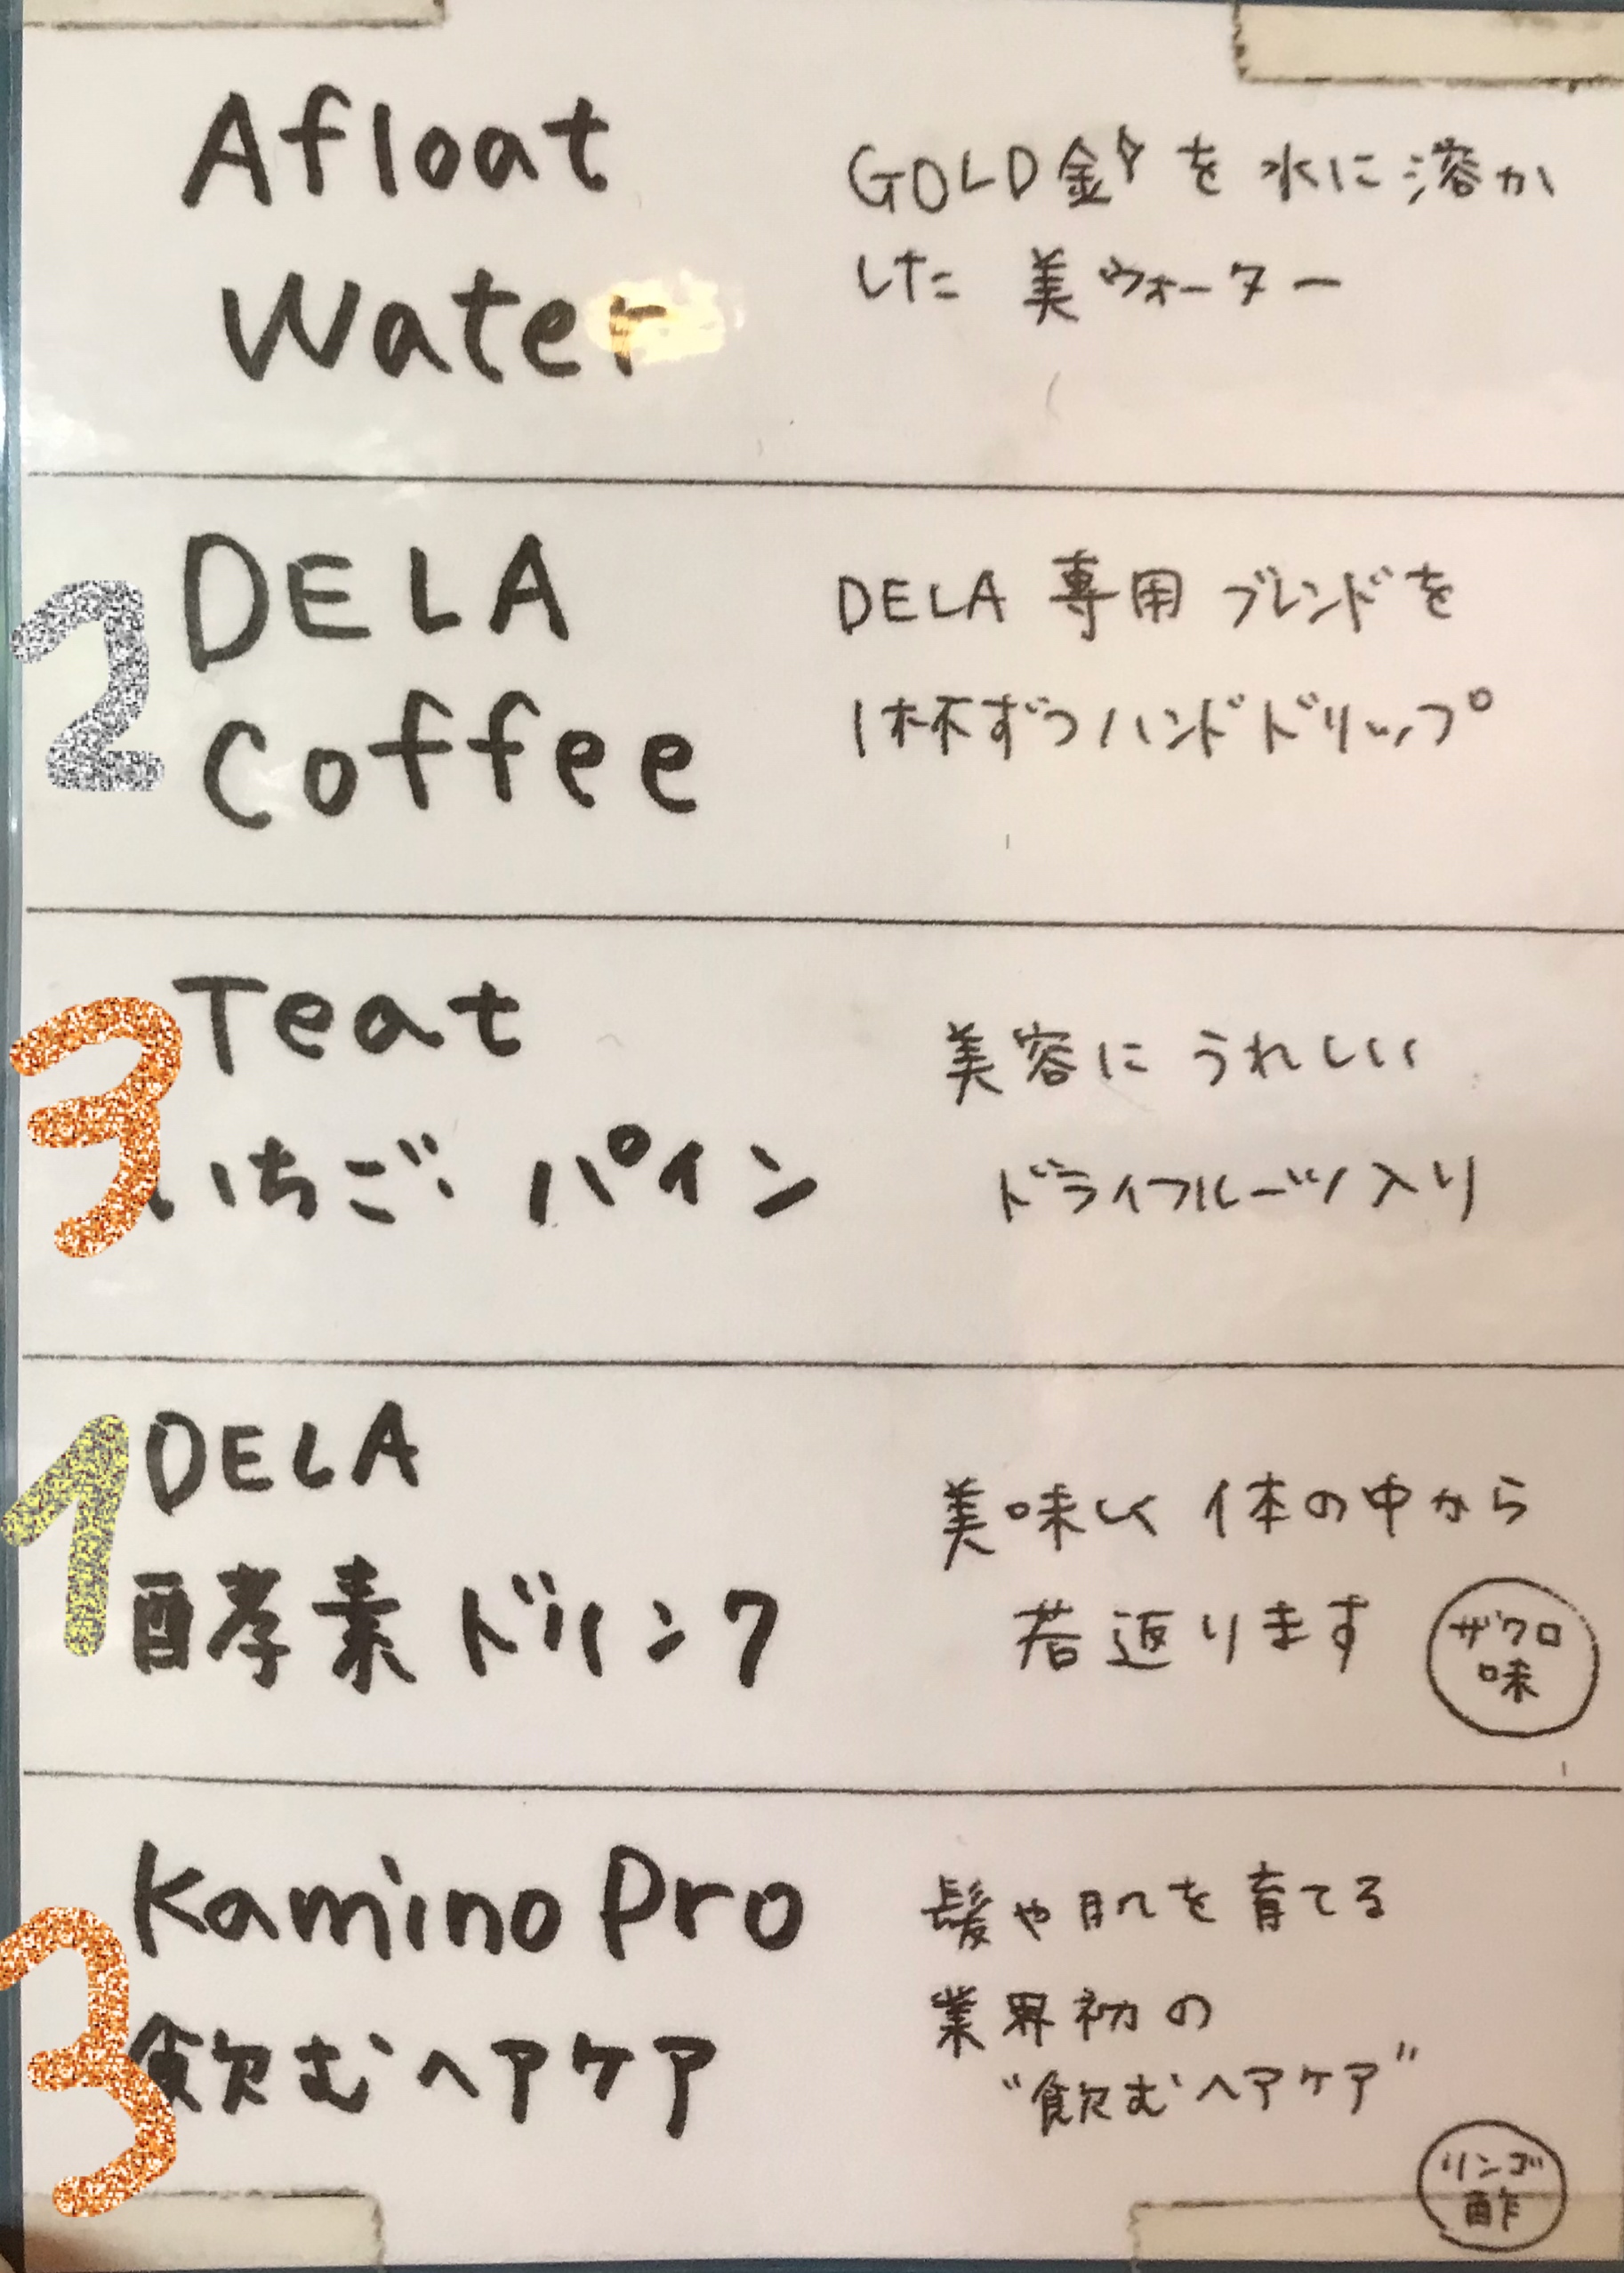 Afloat
Water
GOLD金をを水に溶か
した 美ウォーター
2
DELA
Coffee
DELA 専用 ブレンドを
1杯ずつハンドドリップ
3
Teat
いちご パイン
美容に うれしい
ドライフルーツ入り
1
DELA
酵素 ドリンク
美味しく 体の中から
若返ります
ザクロ
味
3
Kamino Pro
飲むヘアケア
髪や肌を育てる
業界初の
"飲むヘアケア"
リンゴ
酢